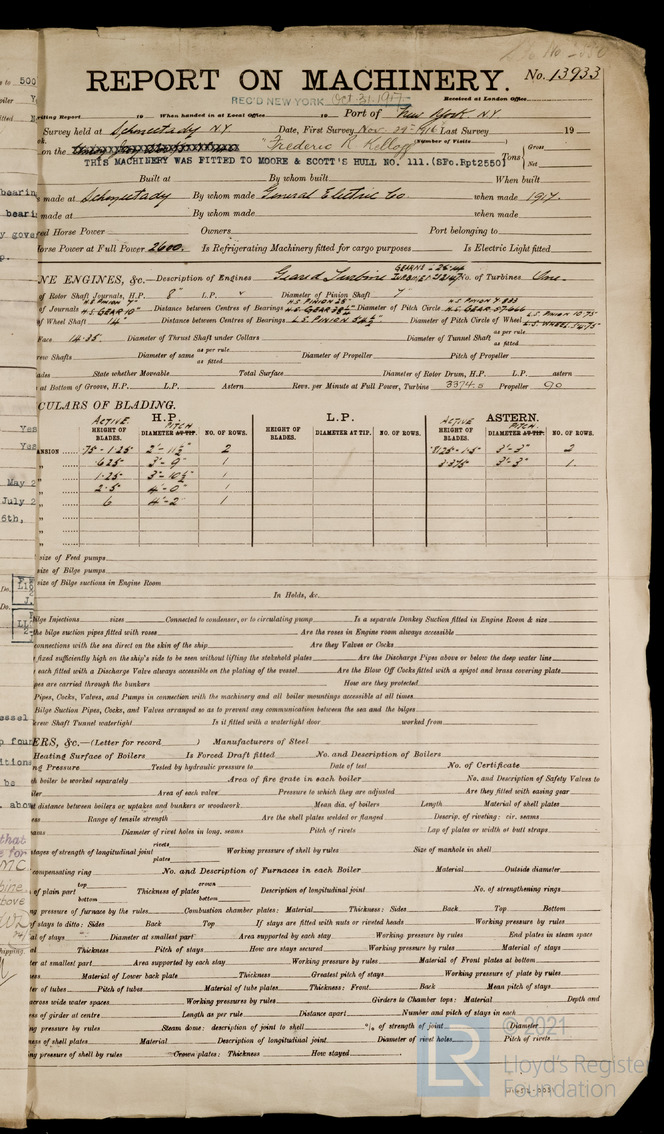 REPORT ON MACHINERY. No. 13933
REC'D NEW YORK Oct. 31. 1917 Received at London Office
Writing Report 19 When handed in at Local Office 19 Port of New York N.Y.
Survey held at Schenectady N.Y. Date, First Survey Nov 29th 1916 Last Survey 19
(Number of Visits
on the "Frederic R. Kellogg" Tons Gross Net
THIS MACHINERY WAS FITTED TO MOORE & SCOTT'S HULL NO. 111.(SFo.Rpt2550)
Built at By whom built When built
s made at Schenectady By whom made General Electric Co. when made 1917.
made at By whom made when made
Horse Power Owners Port belonging to
Horse Power at Full Power 2600. Is Refrigerating Machinery fitted for cargo purposes Is Electric Light fitted
NE ENGINES, &c.—Description of Engines Geared Turbine No. of Turbines One
of Rotor Shaft Journals, H.P. 8" L.P. Diameter of Pinion Shaft 7"
of Journals H.S. PINION 7" H.S. GEAR 10" Distance between Centres of Bearings H.S. PINION 25" Diameter of Pitch Circle
of Wheel Shaft 14" Distance between Centres of Bearings Diameter of Pitch Circle of Wheel L.S. PINION 10.75
Face 14.35 Diameter of Thrust Shaft under Collars Diameter of Tunnel Shaft as per rule as fitted
rew Shafts Diameter of same as per rule as fitted Diameter of Propeller Pitch of Propeller
ades State whether Moveable Total Surface Diameter of Rotor Drum, H.P. L.P. astern
at Bottom of Groove, H.P. L.P. Astern Revs. per Minute at Full Power, Turbine 3374.5 Propeller 90
CULARS OF BLADING.
H.P. L.P. ASTERN.
ACTIVE HEIGHT OF BLADES. PITCH DIAMETER AT TIP. NO. OF ROWS. HEIGHT OF BLADES. DIAMETER AT TIP. NO. OF ROWS. ACTIVE HEIGHT OF BLADES. PITCH DIAMETER AT TIP. NO. OF ROWS.
ANSION 2 3'-3" 2
.625 3'-9" 1 3.375 3'-3" 1.
1.25 3'-10½" 1
2.5 4'-0" 1
6 4'-2" 1
size of Feed pumps
size of Bilge pumps
size of Bilge suctions in Engine Room
In Holds, &c.
Bilge Injections sizes Connected to condenser, or to circulating pump Is a separate Donkey Suction fitted in Engine Room & size
the bilge suction pipes fitted with roses Are the roses in Engine room always accessible
connections with the sea direct on the skin of the ship Are they Valves or Cocks
fixed sufficiently high on the ship's side to be seen without lifting the stokehold plates Are the Discharge Pipes above or below the deep water line
each fitted with a Discharge Valve always accessible on the plating of the vessel Are the Blow Off Cocks fitted with a spigot and brass covering plate
pes are carried through the bunkers How are they protected
Pipes, Cocks, Valves, and Pumps in connection with the machinery and all boiler mountings accessible at all times
Bilge Suction Pipes, Cocks, and Valves arranged so as to prevent any communication between the sea and the bilges
crew Shaft Tunnel watertight Is it fitted with a watertight door worked from
ERS, &c.—(Letter for record ) Manufacturers of Steel
Heating Surface of Boilers Is Forced Draft fitted No. and Description of Boilers
ng Pressure Tested by hydraulic pressure to Date of test No. of Certificate
h boiler be worked separately Area of fire grate in each boiler No. and Description of Safety Valves to
iler Area of each valve Pressure to which they are adjusted Are they fitted with easing gear
distance between boilers or uptakes and bunkers or woodwork Mean dia. of boilers Length Material of shell plates
ess Range of tensile strength Are the shell plates welded or flanged Descrip. of riveting: cir. seams
eams Diameter of rivet holes in long. seams Pitch of rivets Lap of plates or width of butt straps
ntages of strength of longitudinal joint rivets plates Working pressure of shell by rules Size of manhole in shell
compensating ring No. and Description of Furnaces in each Boiler Material Outside diameter
of plain part top bottom Thickness of plates crown bottom Description of longitudinal joint No. of strengthening rings
ng pressure of furnace by the rules Combustion chamber plates: Material Thickness: Sides Back Top Bottom
of stays to ditto: Sides Back Top If stays are fitted with nuts or riveted heads Working pressure by rules
al of stays Diameter at smallest part Area supported by each stay Working pressure by rules End plates in steam space
al Thickness Pitch of stays How are stays secured Working pressure by rules Material of stays
ter at smallest part Area supported by each stay Working pressure by rules Material of Front plates at bottom
ness Material of Lower back plate Thickness Greatest pitch of stays Working pressure of plate by rules
ter of tubes Pitch of tubes Material of tube plates Thickness: Front Back Mean pitch of stays
across wide water spaces Working pressures by rules Girders to Chamber tops: Material Depth and
ess of girder at centre Length as per rule Distance apart Number and pitch of stays in each
ng pressure by rules Steam dome: description of joint to shell % of strength of joint Diameter
ess of shell plates Material Description of longitudinal joint Diameter of rivet holes Pitch of rivets
ng pressure of shell by rules Crown plates: Thickness How stayed
© 2021
LR
Lloyd's Register
Foundation